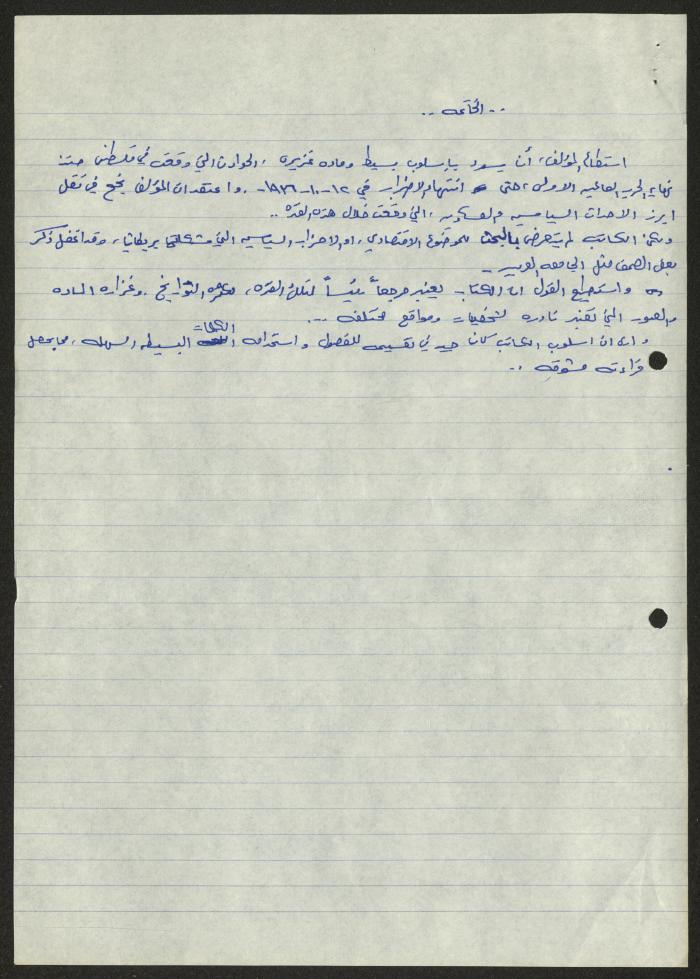 .. الخاتمه ..
استطاع المؤلف، أن يسرد بإسلوب بسيط وماده غزيره، الحوادث التي وقعت في فلسطين منذ
نهاية الحرب العالميه الاولى، حتى انتهاء الاضراب في ١٢-١٠-١٩٣٦. واعتقد ان المؤلف نجح في نقل
ابرز الاحداث السياسيه والعسكريه، التي وقعت خلال هذه الفتره ..
ولكن الكاتب لم يتعرض بالبحث للموضوع الاقتصادي، او الاحزاب السياسيه التي شكلتها بريطانيا، وقد اغفل ذكر
بعض الصحف مثل الجامعه العربيه -
واستطيع القول ان الكتاب يعتبر مرجعاً رئيساً لتلك الفتره، التواريخ وغزاره الماده
والصور التي تعتبر نادره لشخصيات ومواقع مختلفه ...
وارى ان اسلوب الكاتب كان جيد في تقسيمه للفصول واستخدامه الكلمات البسيطه السهله، مما يجعل
قراءته مشوقه ..